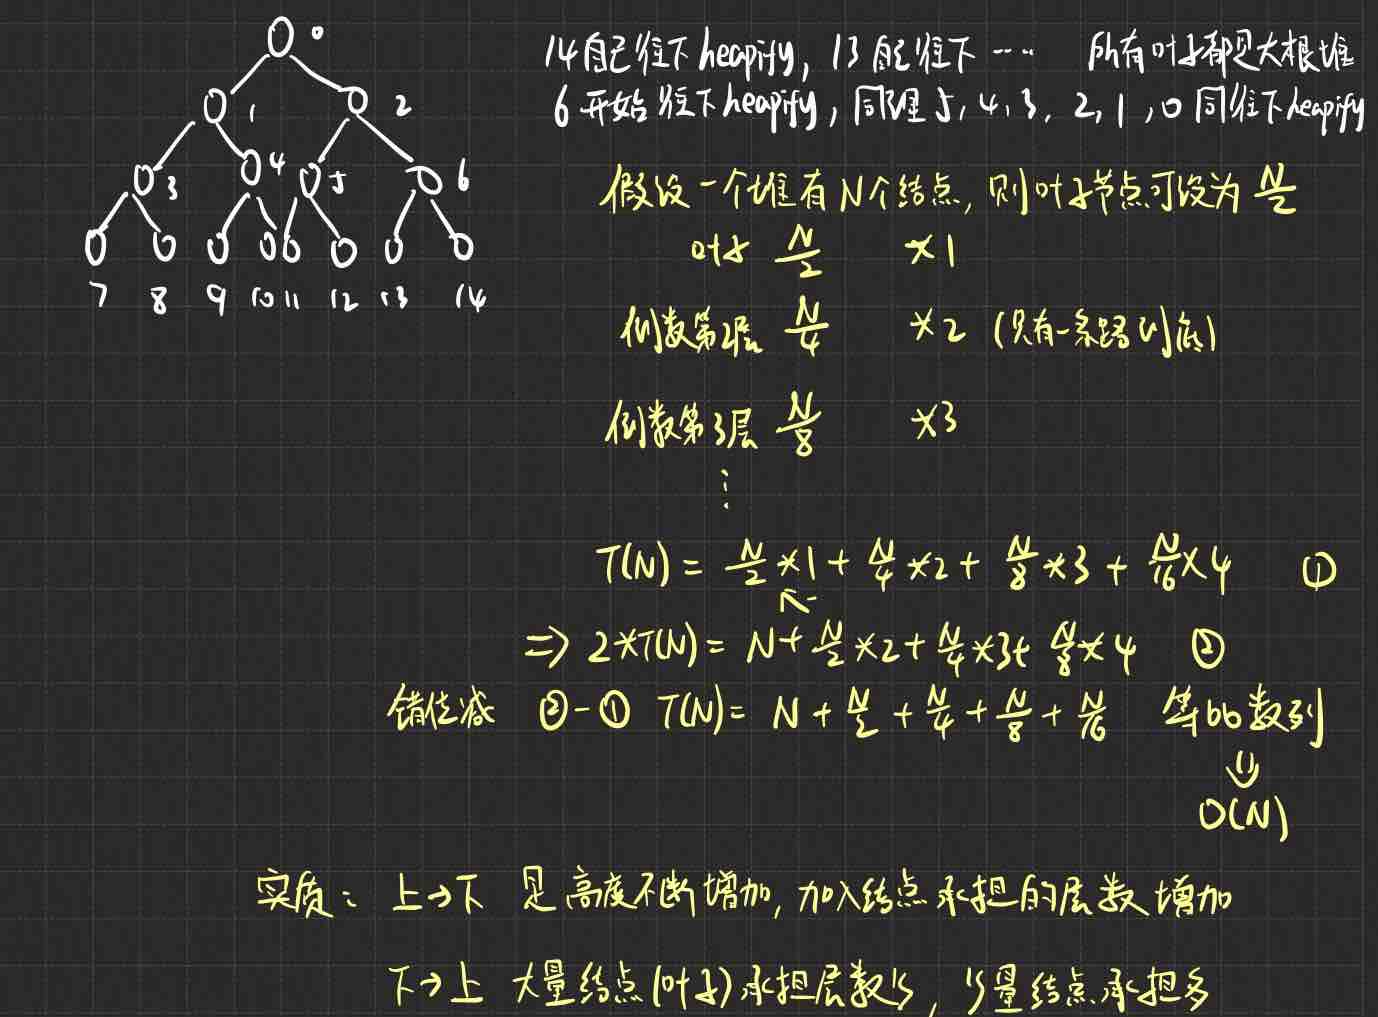 0
1 2
3 4 5 6
7 8 9 10 11 12 13 14
14自己往下heapify, 13自己往下 ···· 所有叶子都是大根堆
6开始往下heapify, 同理5, 4, 3, 2, 1, 0同往下heapify
假设一个堆有N个结点, 则叶子节点可设为 N/2
叶子 N/2 *1
倒数第2层 N/4 *2 (只有一条路到底)
倒数第3层 N/8 *3
⋮
T(N) = N/2 *1 + N/4 *2 + N/8 *3 + N/16 *4 ①
=> 2*T(N) = N + N/2 *2 + N/4 *3 + N/8 *4 ②
错位减 ②-① T(N) = N + N/2 + N/4 + N/8 + N/16 等比数列
⇓
O(N)
实质: 上→下 是高度不断增加, 加入结点承担的层数增加
下→上 大量结点(叶子)承担层数少, 少量结点承担多